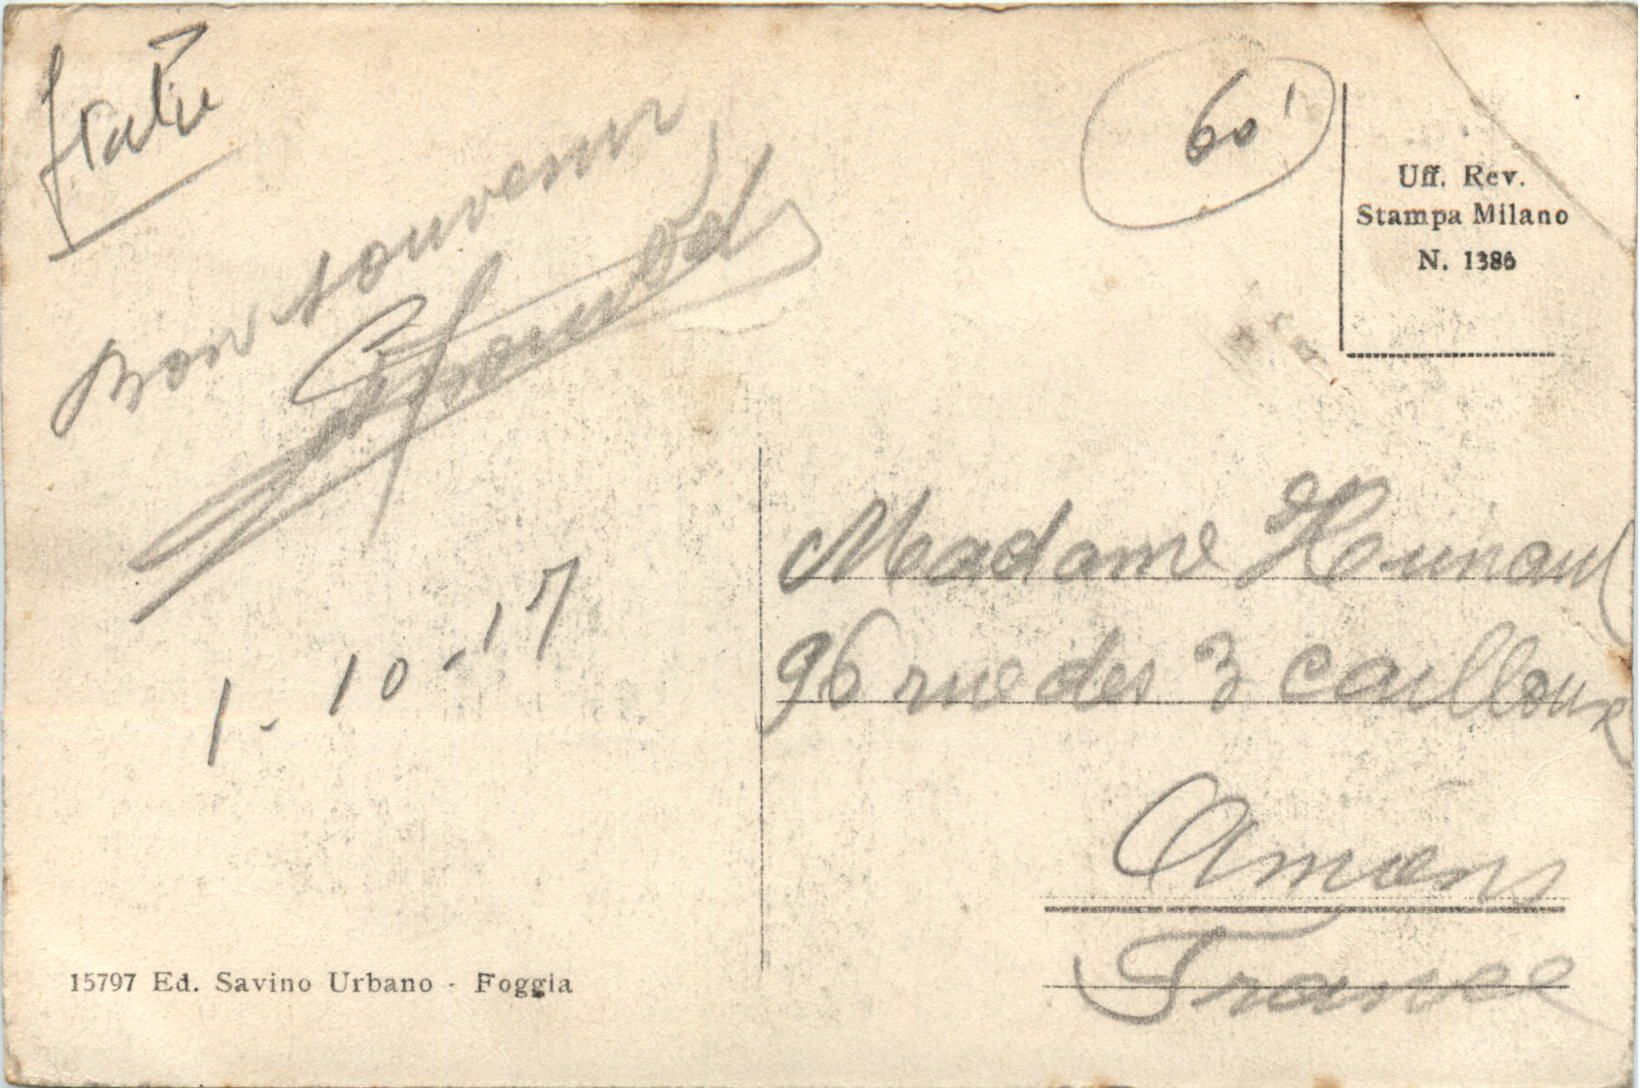 Italie
60
Uff. Rev.
Stampa Milano
N. 1386
Bon souvenir
1-10-17
Madame Hunaut
96 rue des 3 cailloux
Amiens
France
15797 Ed. Savino Urbano - Foggia